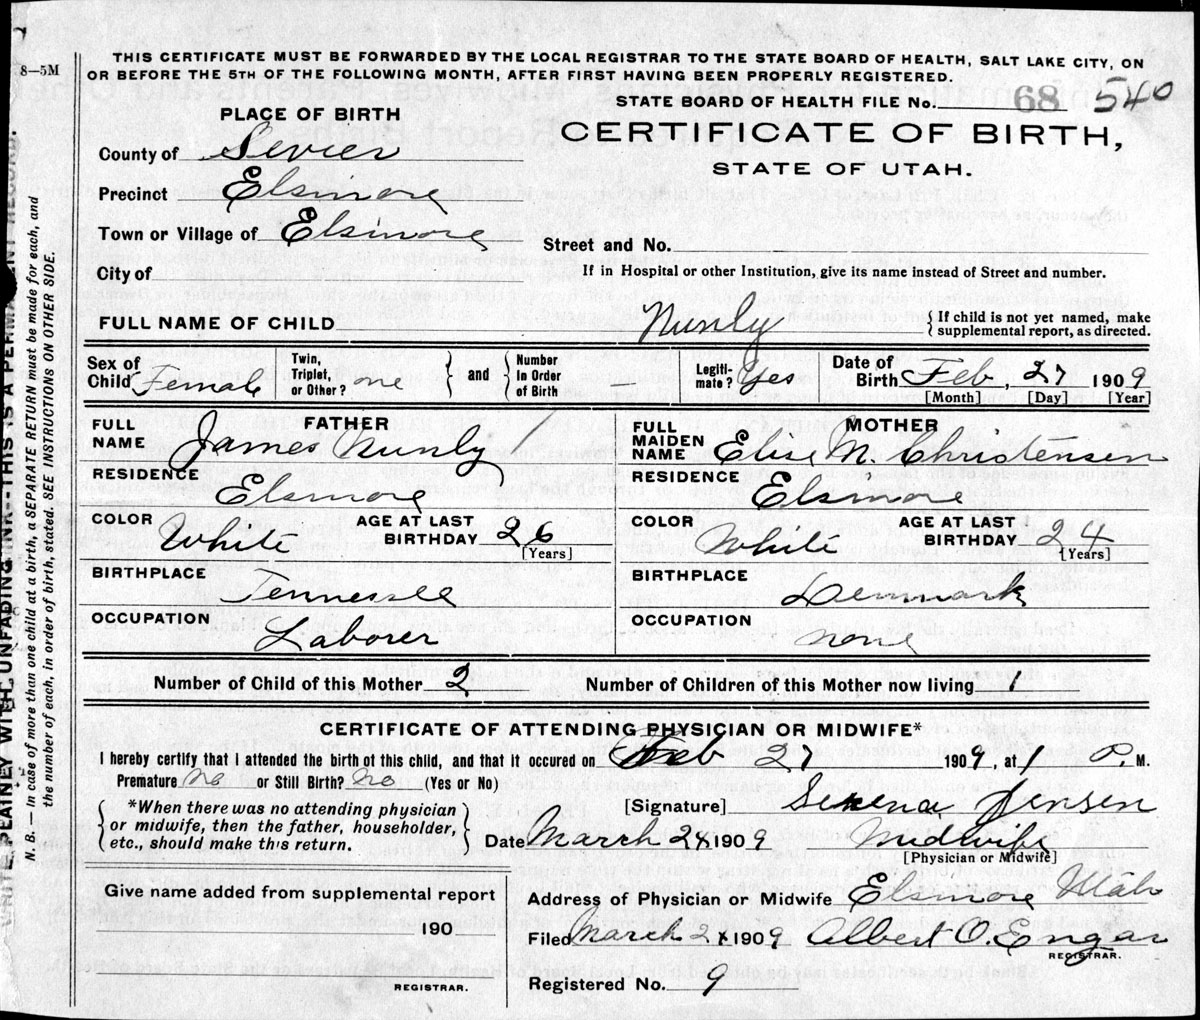 THIS CERTIFICATE MUST BE FORWARDED BY THE LOCAL REGISTRAR TO THE STATE BOARD OF HEALTH, SALT LAKE CITY, ON
8—5M
OR BEFORE THE 5TH OF THE FOLLOWING MONTH, AFTER FIRST HAVING BEEN PROPERLY REGISTERED.
STATE BOARD OF HEALTH FILE No. 68 540
PLACE OF BIRTH
CERTIFICATE OF BIRTH,
STATE OF UTAH.
County of Sevier
Precinct Elsinore
Town or Village of Elsinore
Street and No.
City of
If in Hospital or other Institution, give its name instead of Street and number.
FULL NAME OF CHILD Nunly
{ If child is not yet named, make
supplemental report, as directed.
Sex of Child Female
Twin, Triplet, or Other? one
} and {
Number In Order of Birth —
Legiti-mate? Yes
Date of Birth Feb, 27 1909
[Month] [Day] [Year]
FATHER
FULL NAME James Nunly
MOTHER
FULL MAIDEN NAME Elise M. Christensen
RESIDENCE Elsinore
RESIDENCE Elsinore
COLOR White
AGE AT LAST BIRTHDAY 26
[Years]
COLOR White
AGE AT LAST BIRTHDAY 24
[Years]
BIRTHPLACE Tennessee
BIRTHPLACE Denmark
OCCUPATION Laborer
OCCUPATION none
Number of Child of this Mother 2
Number of Children of this Mother now living 1
CERTIFICATE OF ATTENDING PHYSICIAN OR MIDWIFE*
I hereby certify that I attended the birth of this child, and that it occured on Feb 27 1909, at 1 P. M.
Premature no or Still Birth? no (Yes or No)
{ *When there was no attending physician
or midwife, then the father, householder,
etc., should make this return. }
[Signature] Serena Jensen
Date March 2 1909 Midwife
[Physician or Midwife]
Give name added from supplemental report
190
REGISTRAR.
Address of Physician or Midwife Elsinore Utah
Filed March 2 1909 Albert O. Engar
REGISTRAR.
Registered No. 9
WRITE PLAINLY WITH UNFADING INK--THIS IS A PERMANENT RECORD.
N. B.—In case of more than one child at a birth, a SEPARATE RETURN must be made for each, and
the number of each, in order of birth, stated. SEE INSTRUCTIONS ON OTHER SIDE.